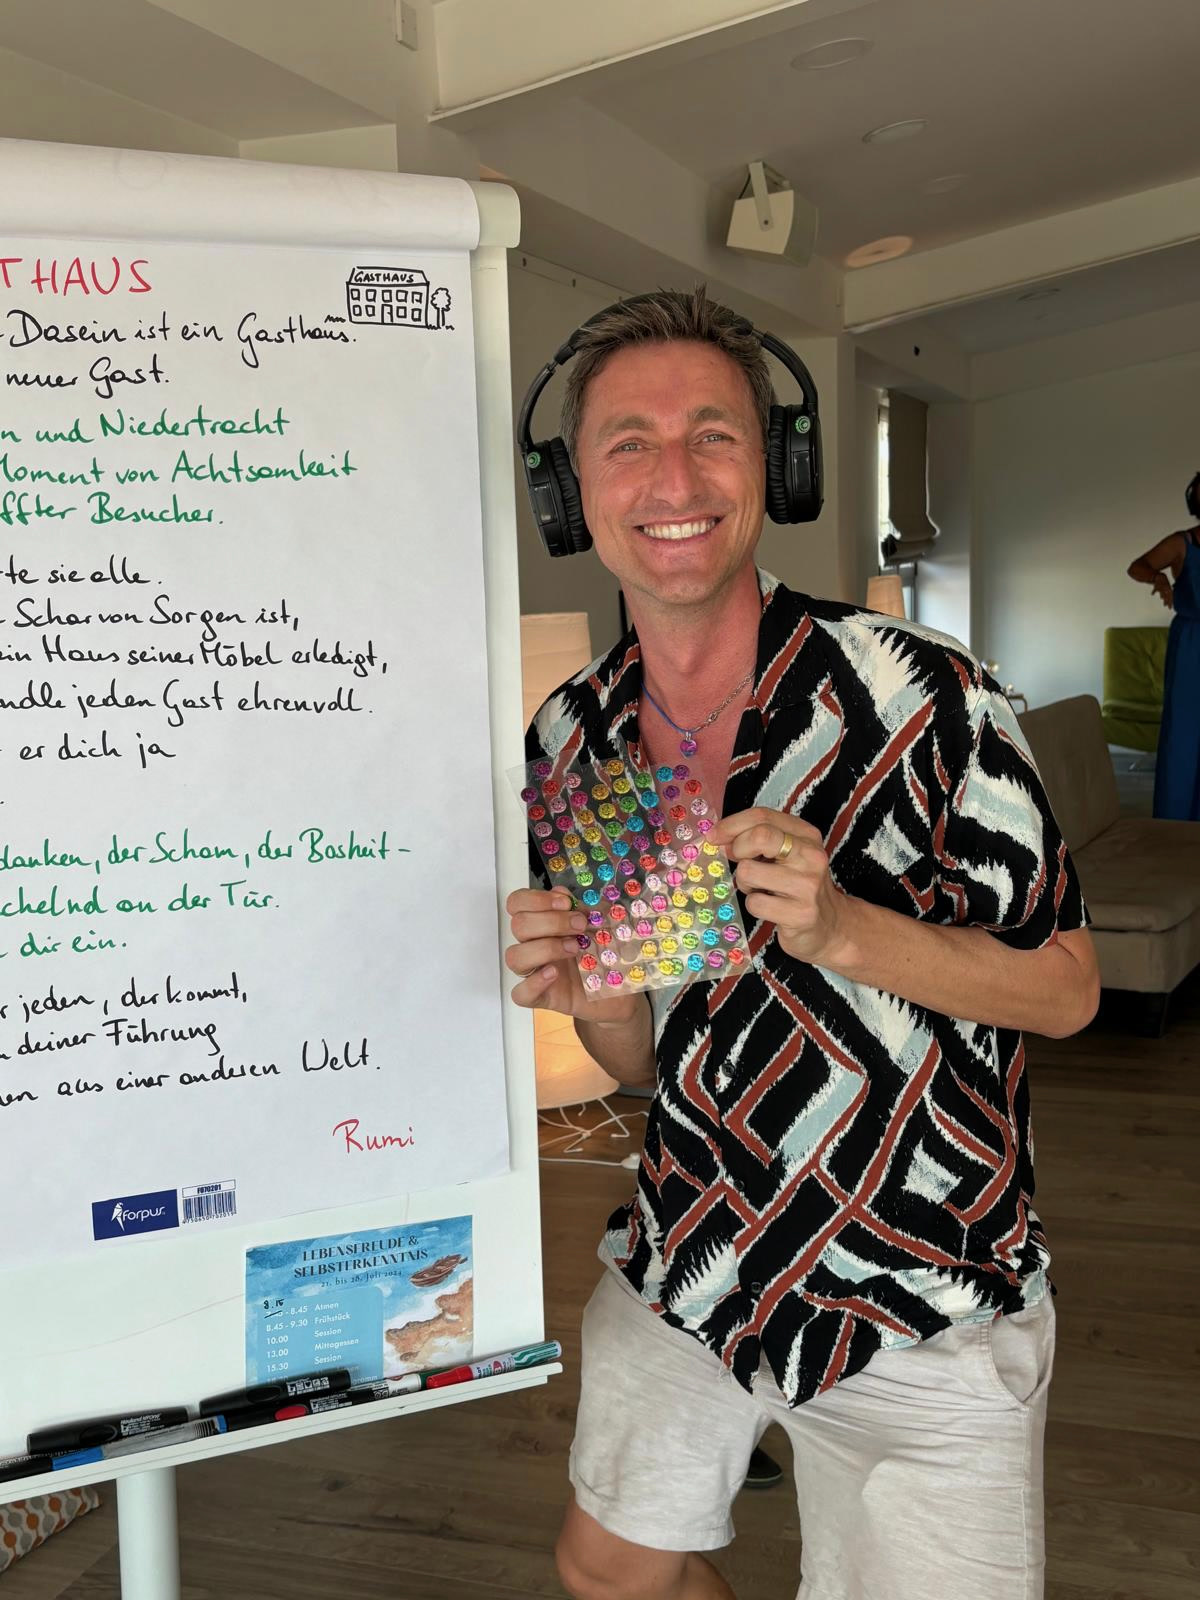 THAUS
GASTHAUS
Dasein ist ein Gasthaus.
neuer Gast.
n und Niedertracht
Moment von Achtsamkeit
ffter Besucher.
te sie alle.
Schar von Sorgen ist,
ein Haus seiner Möbel erledigt,
ndle jeden Gast ehrenvoll.
er dich ja
danken, der Scham, der Bosheit -
chelnd an der Tür.
dir ein.
r jeden, der kommt,
deiner Führung
en aus einer anderen Welt.
Rumi
forpus
F070201
LEBENSFREUDE &
SELBSTERKENNTNIS
21. bis 28. Juli 2024
8.15
- 8.45 Atmen
8.45 - 9.30 Frühstück
10.00 Session
13.00 Mittagessen
15.30 Session